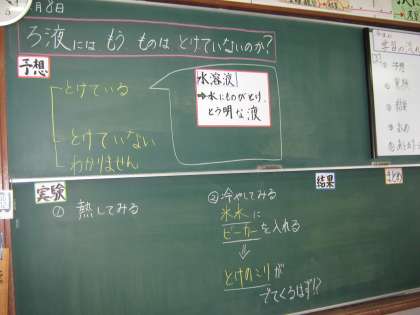 月8日
ろ液には もう ものは とけていないのか?
予想
とけている
とけていない
わかりません
水溶液
➡水にものがとけ、
とう明な液
実験
① 熱してみる
②冷やしてみる
氷水に
ビーカーを入れる
⇓
とけのこりが
でてくるはず!?
結果
まとめ
学習の流れ
予想
実験
結果